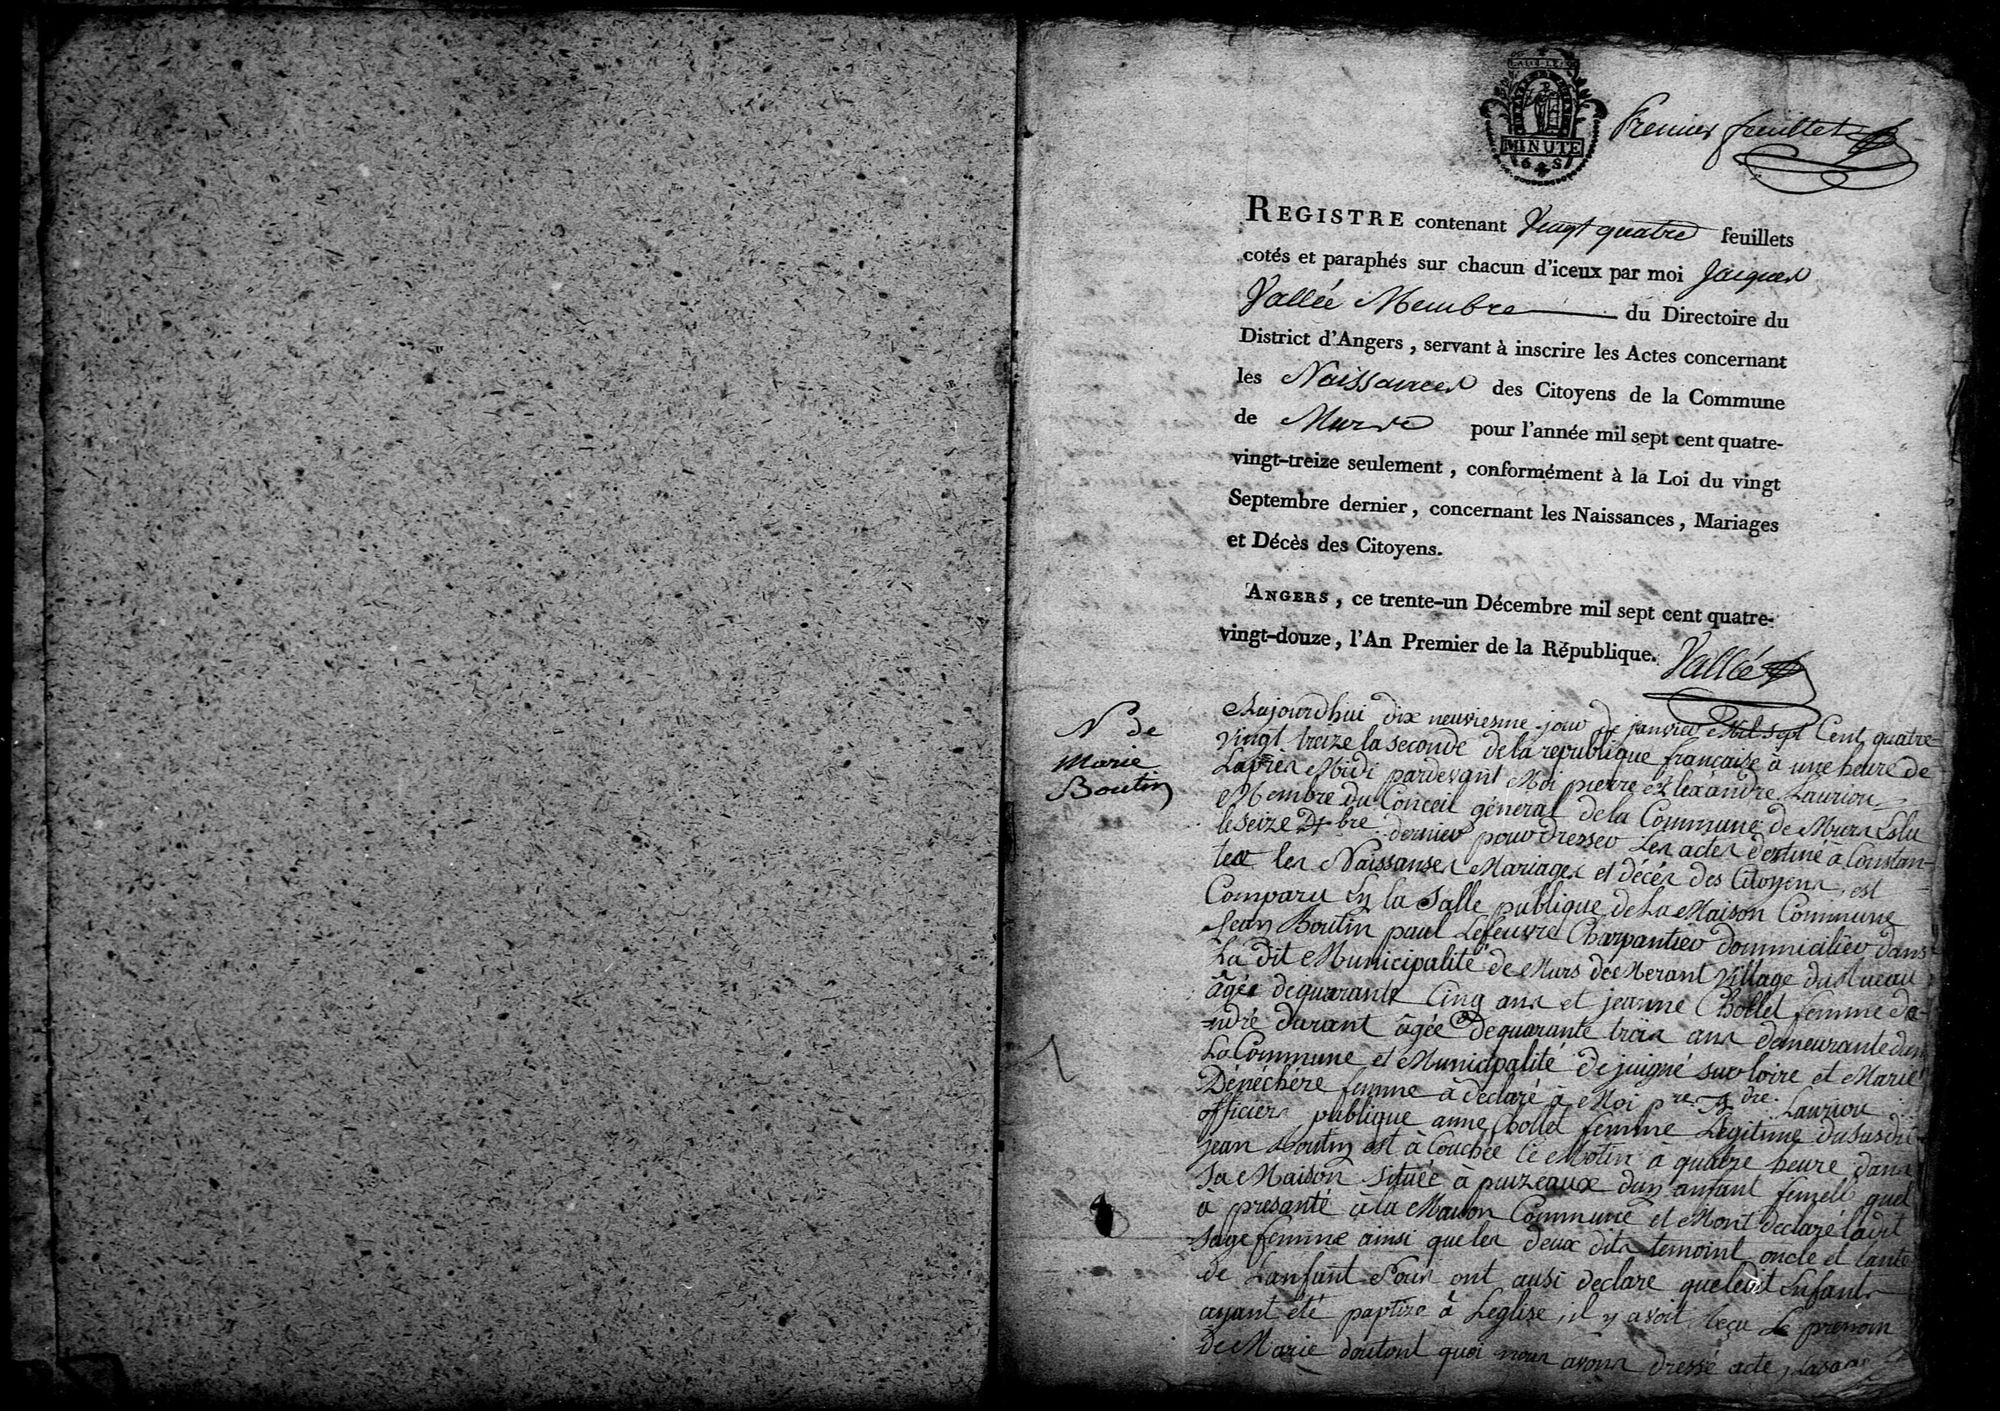 LA LOI LE ROI
MINUTE
6 S
Premier feuillet
REGISTRE contenant Vingt quatre feuillets
cotés et paraphés sur chacun d'iceux par moi Jacques
Vallée Membre du Directoire du
District d'Angers, servant à inscrire les Actes concernant
les Naissances des Citoyens de la Commune
de Murs pour l'année mil sept cent quatre-
vingt-treize seulement, conformément à la Loi du vingt
Septembre dernier, concernant les Naissances, Mariages
et Décès des Citoyens.
ANGERS, ce trente-un Décembre mil sept cent quatre-
vingt-douze, l'An Premier de la République.
Vallée
N de
Marie
Boutin
Aujourdhui dix neuviesme jour de janvier Mil sept Cent quatre
Vingt treize la seconde de la republique française à une heure de
Laprès Midi pardevant Moi pierre Alexandre Lauriou
Membre du Conceil général de la Commune de Murs Eslu
le seize Xbre dernier pour dresser Les actes destiné à Constan-
ter les Naissanses Mariages et décés des Citoyens, est
Comparu En la Salle publique de La Maison Commune
Jean Boutin paul Lefeuvre Charpantier dommicilier dans
La dit Municipalité de Murs Village du
âgée de quarante Cinq ans et jeanne Chollet femme da-
-ndré durant âgée de quarante trois ans demeurante dans
La Commune et Municipalité de juigné sur loire et Marie
Dénéchère femme à declaré à Moi pre Lauriou
officiers publique anne Chollet femme Légitime du susdit
jean Boutin est à Couchée Ce Matin a quatre heure dans
Sa Maison Située à puizeaux dun anfant femelle quel
à presanté à la Maison Commune et Mont declaré ladit
Sage femme ainsi que les deux dits temoint oncle et tante
de Lanfant Nous ont ausi declare que ledit Enfant
ayant été paptize à Leglise, il y avoit reçu Le prenom
de Marie doutont quoi nous avons dressé acte,